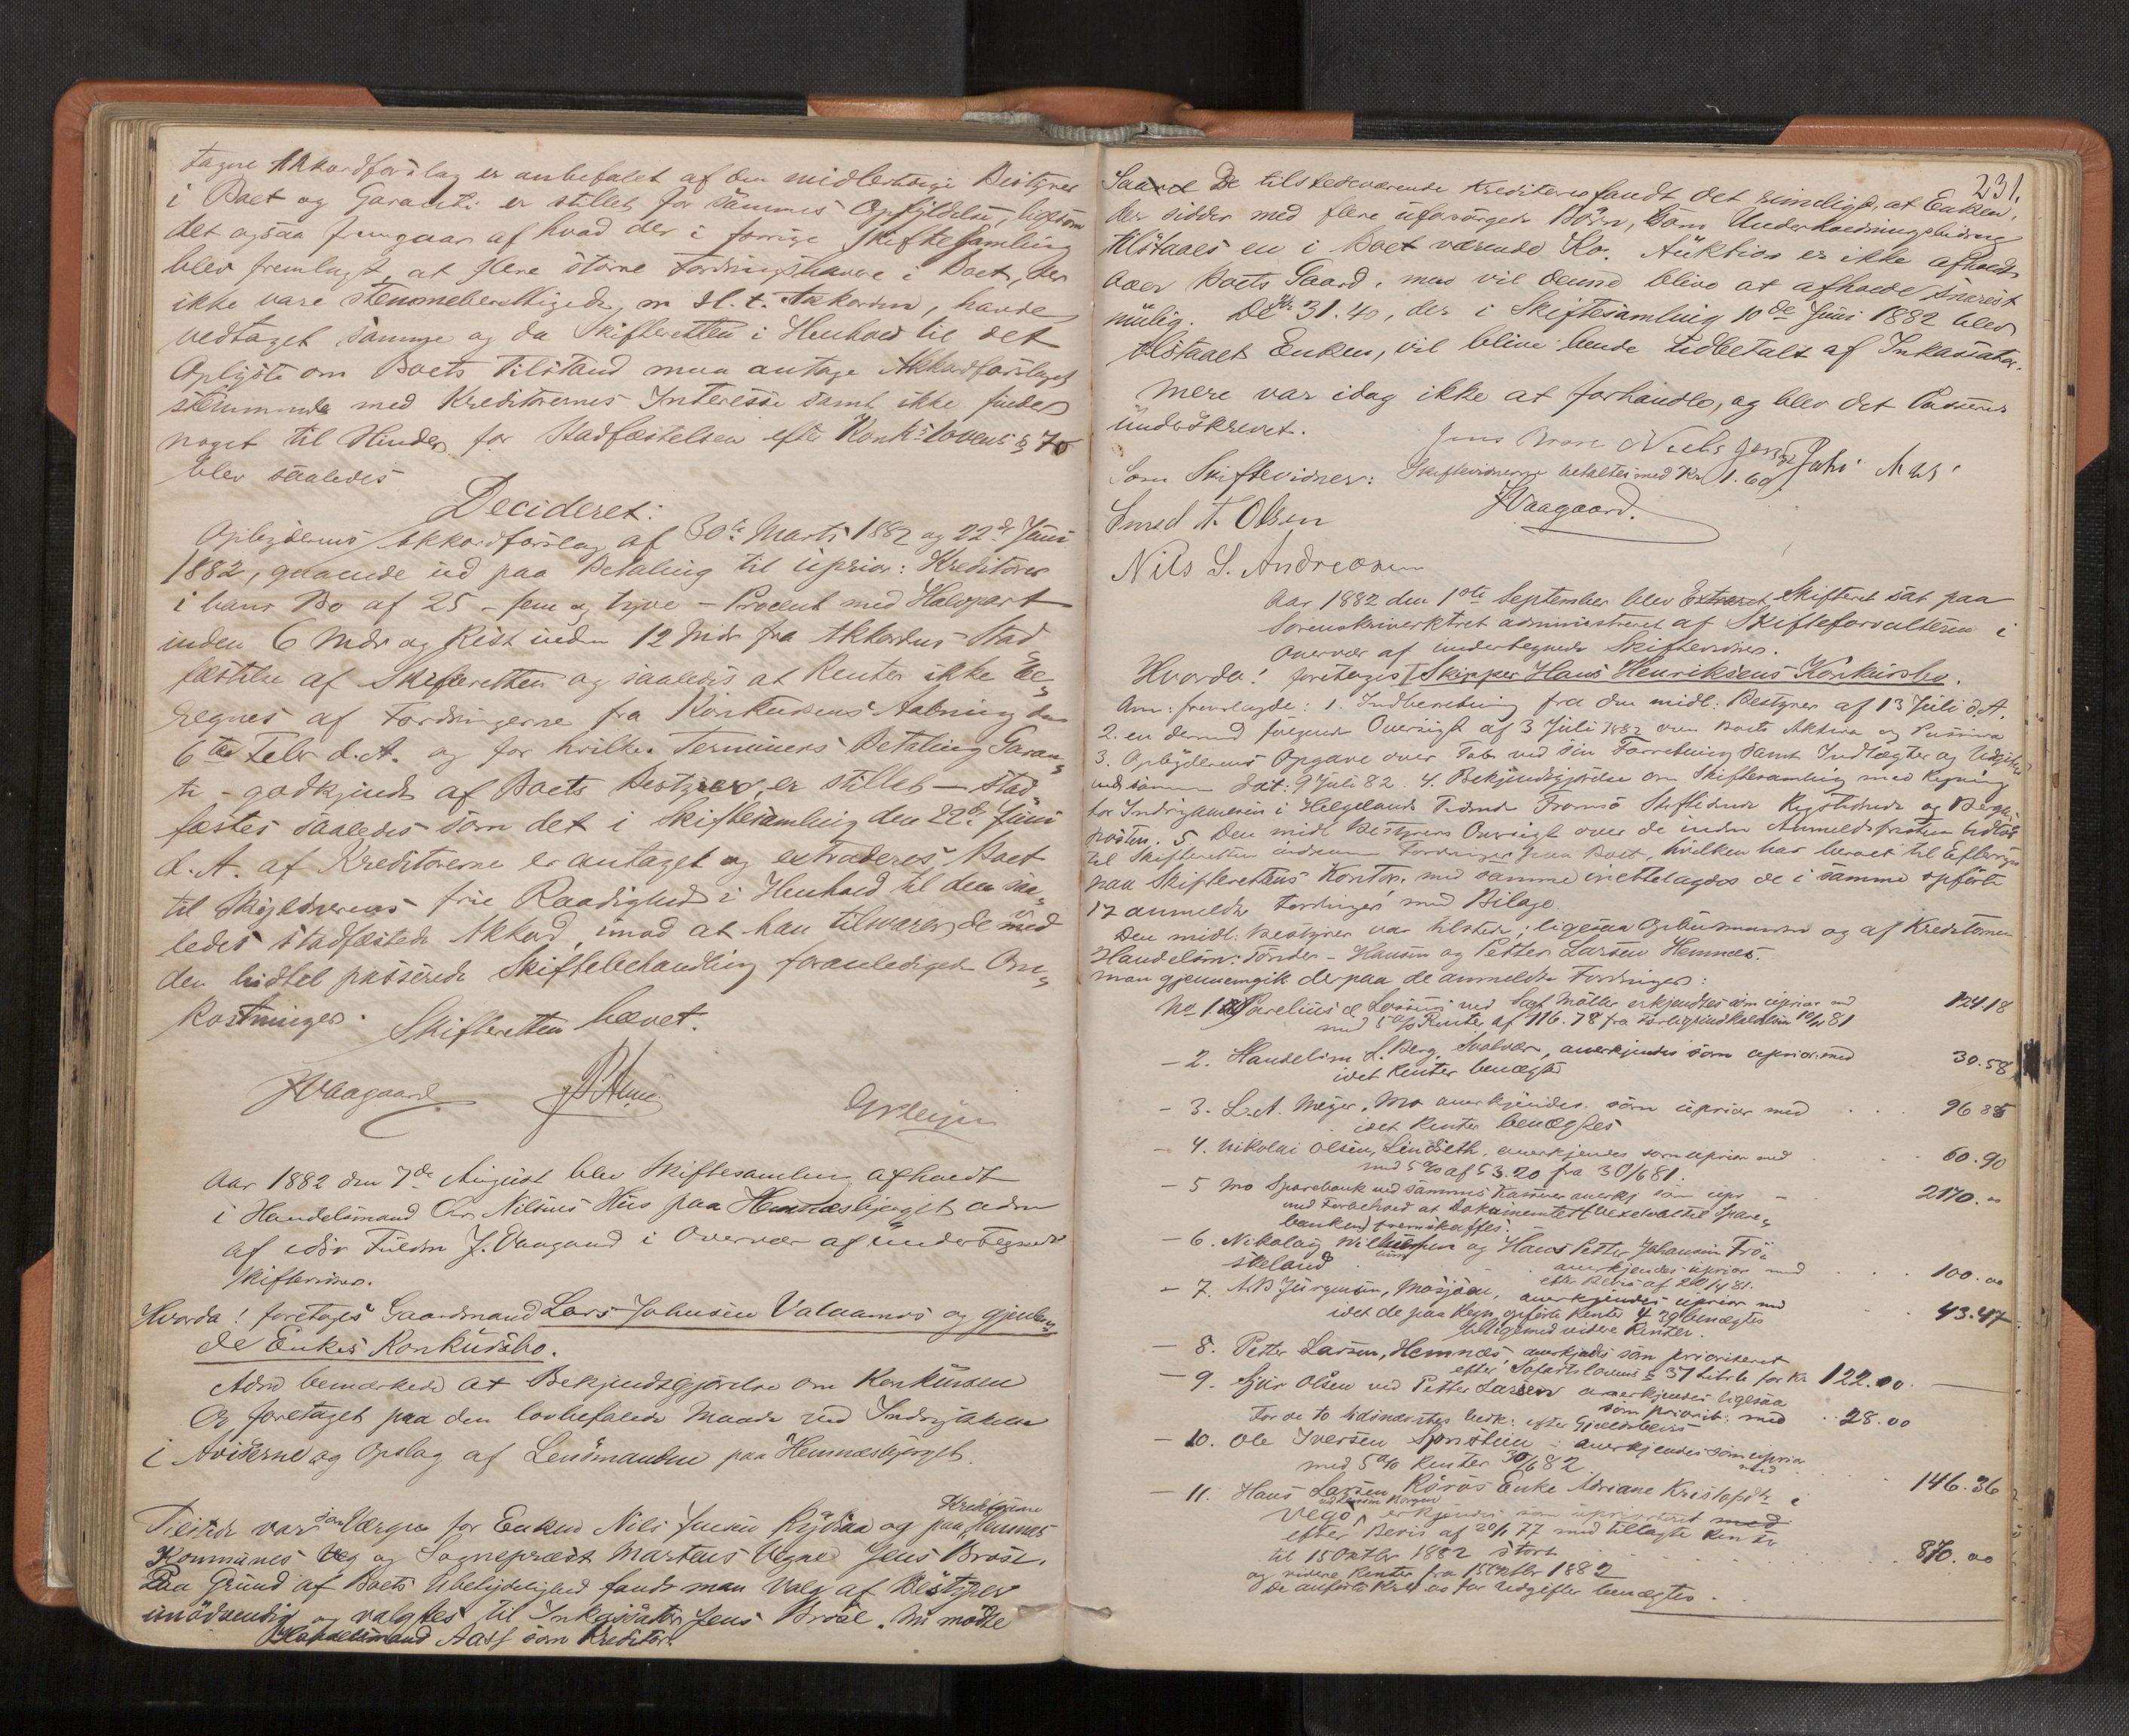 tagne Akkordforslag er anbefalet af den midlertidige Bestyrer
i Boet og Garanti er stillet for sammes Opfyldelse, ligesom
det ogsaa fremgaar af hvad der i forrige Skiftesamling
blev fremlagt, at flere större Fordringshavere i Boet, der
ikke vare stemmeberettigede m. H. t. Akkorden, havde
vedtaget samme og da Skifteretten i Henhold til det
Oplyste om Boets Tilstand maa antage Akkordforslaget
stemmende med Kreditorernes Interesse samt ikke finder
noget til Hinder for Stadfæstelsen efter Konk.lovens § 70
blev saaledes
Decideret:
Opbyderens Akkordforslag af 30te Marts 1882 og 22de Juni
1882, gaaende ud paa Betaling til uprior: Kreditorer
i hans Bo af 25 - fem og tyve - Procent med Halvpart
inden 6 Mdr og Rest inden 12 Mdr fra Akkordens Stad
fæstelse af Skifteretten og saaledes at Renter ikke be-
regnes af Fordringerne fra Konkursens Aabning den
6te Febr d.A. og for hvilke Terminers Betaling Garan-
ti - godkjendt af Boets Bestyrer, er stillet - stad
fæstes saaledes som det i Skiftesamling den 22de Juni
d.A. af Kreditorerne er antaget og extraderes Boet
til Skyldnerens frie Raadighed i Henhold til den saa-
ledes stadfæstede Akkord, imod at han tilsvarer de med
den hidtil passerede Skiftebehandling foranledigede Om-
kostninger.
Skifteretten hævet.
JVaagaard
Aar 1882 den 7de August blev Skiftesamling afholdt
i Handelsmand Chr. Nilsens Hus paa Hemnæsbjerget adm
af edsv Fuldm J. Vaagaard i Overvær af undertegnede
Skiftevidner.
Hvorda! foretoges Gaardmand Lars Johnsen Valaamos og gjenlev-
de Enkes Konkursbo.
Adm bemærkede at Bekjendtgjörelse om Konkursen
Er foretaget paa den lovbefalede Maade ved Indrykkelse
i Aviserne og Opslag af Lensmanden paa Hemnæsbjerget.
Kreditorerne
Tilstede var som Værge for Enken Nils Jensen Rydsaa og paa Hemnæs
Kommunes Veg og Sogneprest Martens Vegne Jens Brose.
Paa Grund af Boets Ubetydelighed fandt man Valg af Bestyrer
unödvendig og valgtes til Inkassator Jens Brose. Nu mödte
Handelsmand Aass som Kreditor.
231.
De tilstedeværende Kreditorer fandt det rimeligt, at Enken,
der sidder med flere uforsörgede Börn, som Underholdningsbidrag
tilstaaes en i Boet værende Ko. Auktion er ikke afholdt
over Boets Gaard, men vil denne blive at afholde snarest
mulig. De Kr 31.40, der i Skiftesamling 10de Juni 1882 blev
tilstaaet Enken, vil blive hende udbetalt af Inkassator.
Mere var idag ikke at forhandle, og blev det Passerede
underskrevet.
Jens Brose Niels Jens
Som Skiftevidner: Skiftevidnerne betaltes med Kr 1.60
JVaagaard.
T. Olsen
Nils S. Andreasen
Aar 1882 den 1ste September blev Extraret Skifteret sat paa
Sorenskriverktret administreret af Skifteforvalteren i
Overvær af undertegnede Skiftevidner.
Hvorda! foretoges i Skipper Hans Henriksens Konkursbo.
Adm: fremlagde: 1. Indberetning fra den midl: Bestyrer af 13 Juli d.A.
2. en dermed fölgende Oversigt af 3 Juli 1882 over Boets Aktiva og Passiva
3. Opbyderens Opgave over Tab ved sin Forretning samt Indtægter og Udgifter
ved samme dat: 9 Juli 82. 4. Bekjendtgjörelse om Skiftesamling med Regning
for Indrykkelsen i Helgelands Tidende Tromsö Stiftstidende Rigstidende og Bergens-
posten. 5. Den midl Bestyrers Oversigt over de inden Anmeldsfristens Udlöb
til Skifteretten indkomne Fordringer paa Boet, hvilken har beroet til Eftersyn
paa Skifterettens Kontor, med samme irettelagdes de i samme opförte
17 anmeldte Fordringer med Bilage.
Den midl: Bestyrer var tilstede; ligesaa Opbudsmanden og af Kreditorerne
Handelsm: Tönder - Hansen og Petter Larsen Hemnæs.
Man gjennemgik derpaa de anmeldte Fordringer:
No 1. ved Sagf Möller erkjendtes som uprior med 124 18
med 5% Renter af 116.78 fra
- 2. Handelsm L. Berg, Svolvær, anerkjendes som uprior: med 30.58
idet Renter benægtes
- 3. L. A. Meyer, Mo anerkjendes som uprior med . . . 96 85
idet Renter benægtes
- 4. Nikolai Olsen, Lindseth, anerkjendes som uprior med . . 60.90
med 5% af 53.20 fra 30/6 81.
- 5 Mo Sparebank ved sammes Kasserer anerkj som upr - 2170.00
med Forbehold at Dokumentet (Vexelobl til Spare-
banken) fremskaffes.
- 6. Nikolaÿ Wilhelmsen og Hans Petter Johansen Frö-
skeland . . anerkjendes uprior med . . . 100.00
efter Bevis af
- 7. A B Jürgensen, Mosjöen, anerkjendes uprior med . . 43.47
idet de paa Regn. opförte Renter 4.30 benægtes
tilligemed videre Renter.
- 8. Petter Larsen, Hemnæs anerkjendes som prioriteret
efter Söfartslovens § 37 Litr b for Kr 122.00
- 9. Sjur Olsen ved Petter Larsen anerkjendes ligesaa
som priorit: med . . 28.00
- 10. Ole Iversen anerkjendes som uprior
med 5% Renter 30/6 82 med . . 146.36
- 11. Hans Larsen Rörös Enke Adriane Kristofsdtr i
Vegö, erkjendes som uprioriteret med
efter Bevis af 20/1 77 med tillagte Renter
til 15 Oktbr 1882 stort . . . 870.00
og videre Renter fra 15 Oktbr 1882
De anförte for Udgifter benægtes.